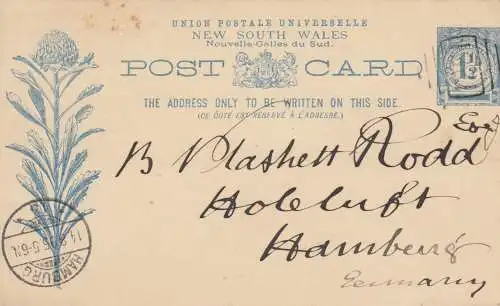 UNION POSTALE UNIVERSELLE
NEW SOUTH WALES
Nouvelle-Galles du Sud.
POST CARD
1½
THE ADDRESS ONLY TO BE WRITTEN ON THIS SIDE.
(CE CÔTÉ EST RÉSERVÉ À L'ADRESSE.)
Esq
B Plashett Rodd
Holeluft
Hamburg
Germany
HAMBURG